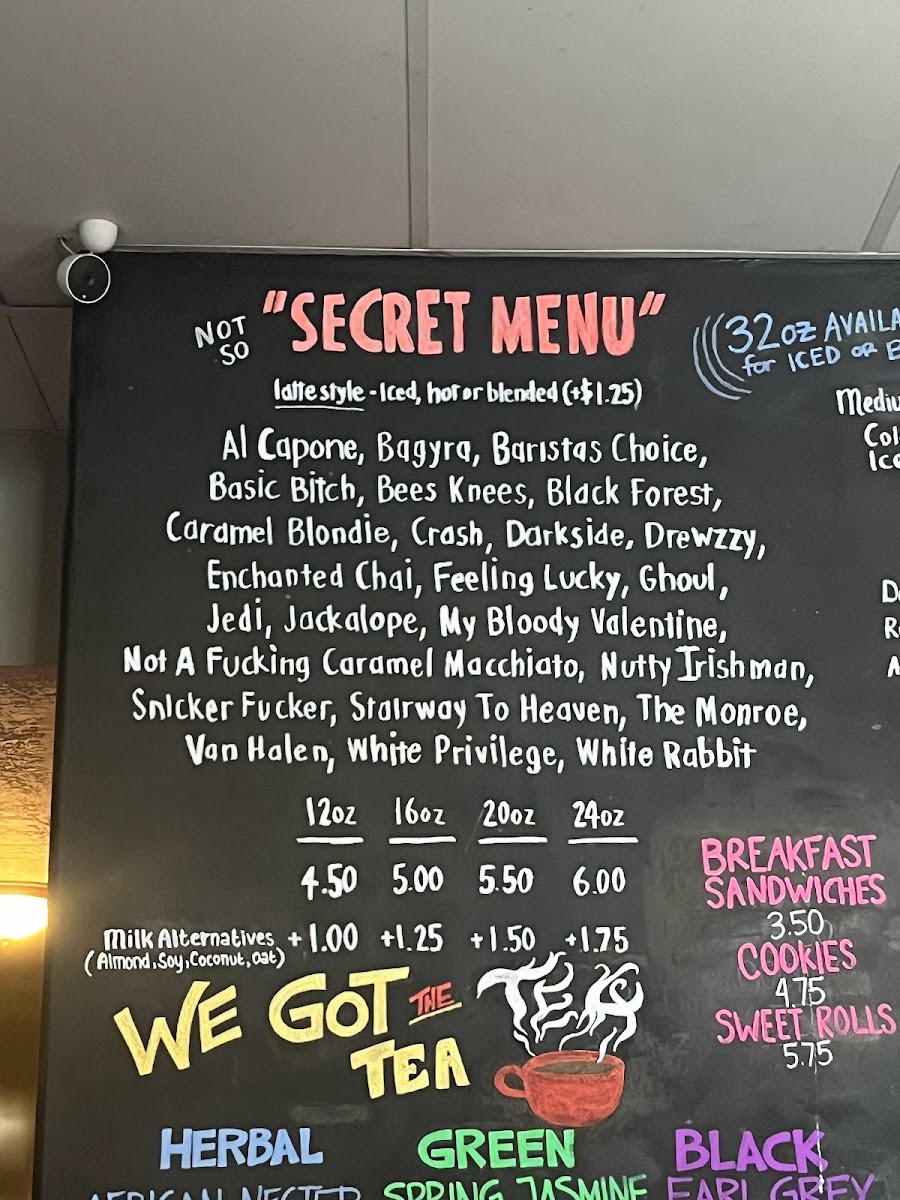 NOT SO "SECRET MENU"
latte style - Iced, hot or blended (+$1.25)
Al Capone, Bagyra, Baristas Choice,
Basic Bitch, Bees Knees, Black Forest,
Caramel Blondie, Crash, Darkside, Drewzzy,
Enchanted Chai, Feeling Lucky, Ghoul,
Jedi, Jackalope, My Bloody Valentine,
Not A Fucking Caramel Macchiato, Nutty Irishman,
Snicker Fucker, Stairway To Heaven, The Monroe,
Van Halen, White Privilege, White Rabbit
12oz 16oz 20oz 24oz
4.50 5.00 5.50 6.00
Milk Alternatives +1.00 +1.25 +1.50 +1.75
(Almond, Soy, Coconut, Oat)
WE GOT THE
TEA
TEA
32oz
for ICED OR
BREAKFAST
SANDWICHES
3.50
COOKIES
4.75
SWEET ROLLS
5.75
HERBAL GREEN BLACK
AFRICAN NECTER SPRING JASMINE EARL GREY